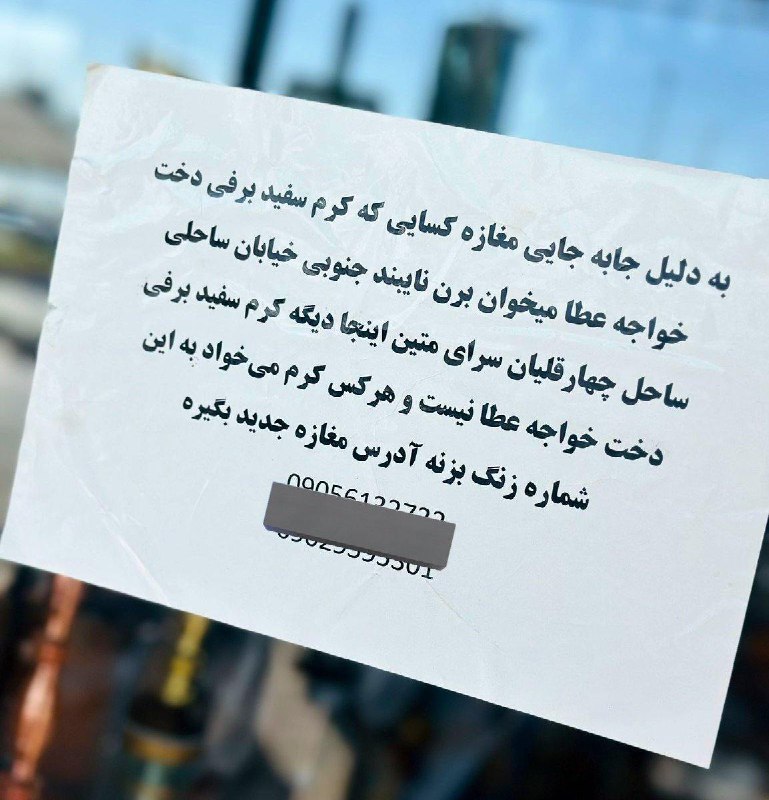 به دلیل جابه جایی مغازه کسایی که کرم سفید برفی دخت
خواجه عطا میخوان برن نایبند جنوبی خیابان ساحلی
ساحل چهارقلیان سرای متین اینجا دیگه کرم سفید برفی
دخت خواجه عطا نیست و هرکس کرم می‌خواد به این
شماره زنگ بزنه آدرس مغازه جدید بگیره